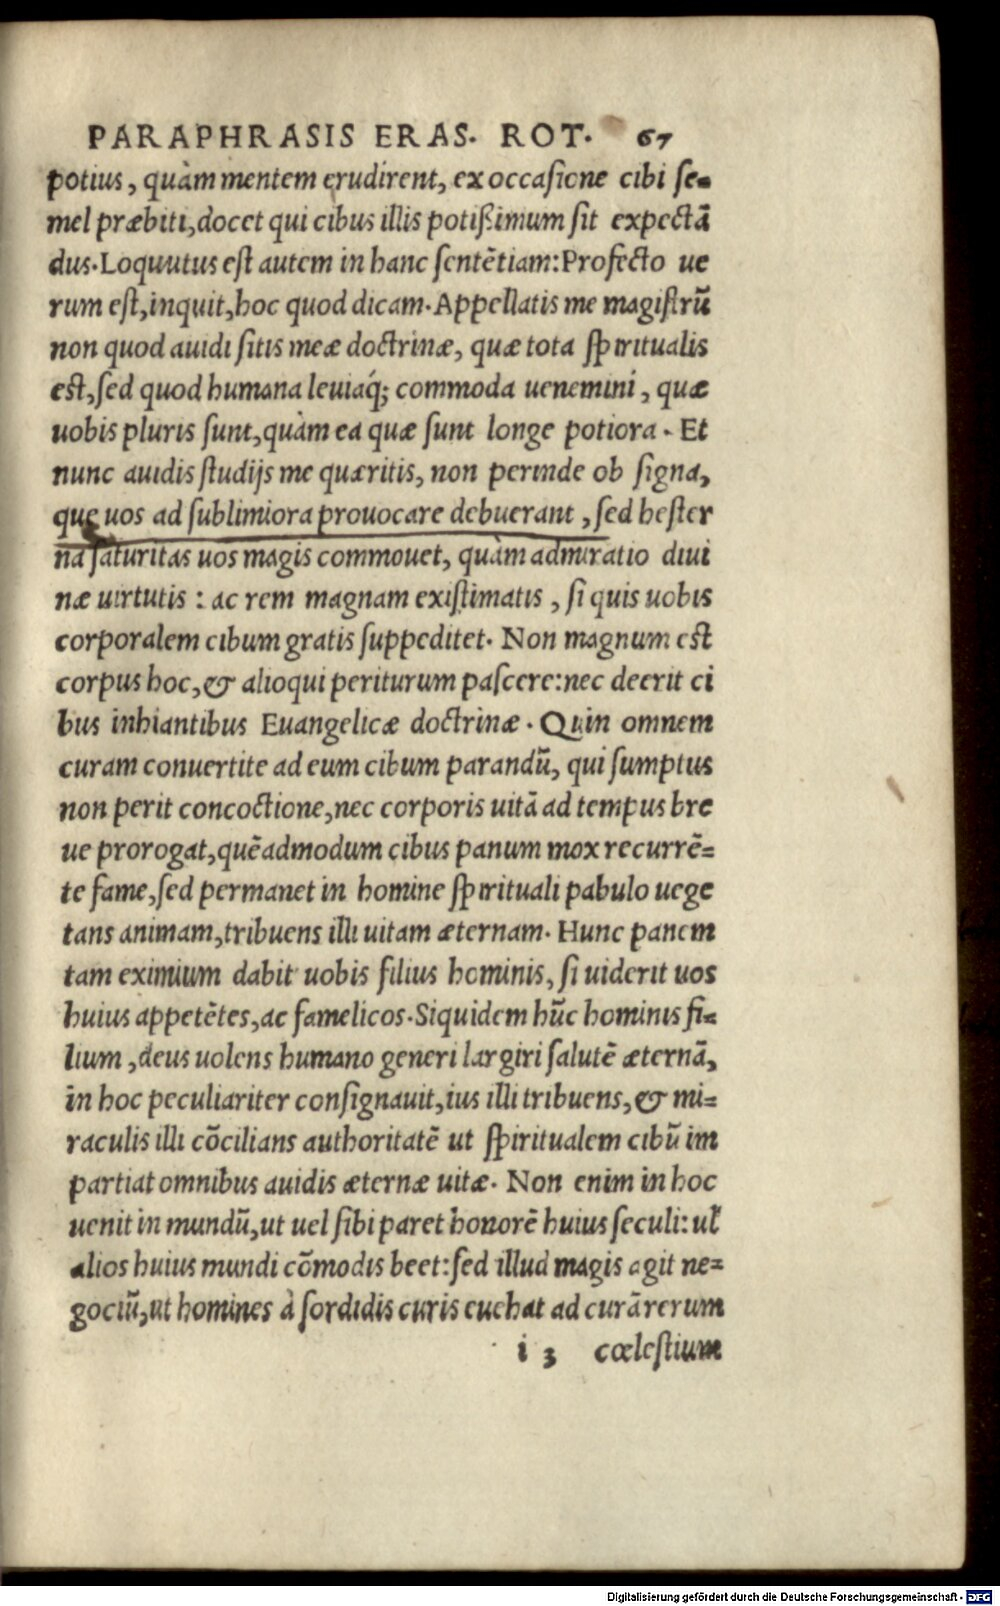 PARAPHRASIS ERAS. ROT. 67
potius, quàm mentem erudirent, ex occasione cibi se-
mel præbiti, docet qui cibus illis potißimum sit expectā
dus. Loquutus est autem in hanc sentētiam: Profecto ue
rum est, inquit, hoc quod dicam. Appellatis me magistrū
non quod auidi sitis meæ doctrinæ, quæ tota spiritualis
est, sed quod humana leuiaq́; commoda uenemini, quæ
uobis pluris sunt, quàm ea quæ sunt longe potiora. Et
nunc auidis studijs me quæritis, non perinde ob signa,
que uos ad sublimiora prouocare debuerant, sed hester
na saturitas uos magis commouet, quàm admiratio diui
næ uirtutis: ac rem magnam existimatis, si quis uobis
corporalem cibum gratis suppeditet. Non magnum est
corpus hoc, & alioqui periturum pascere: nec deerit ci
bus inhiantibus Euangelicæ doctrinæ. Quin omnem
curam conuertite ad eum cibum parandū, qui sumptus
non perit concoctione, nec corporis uitā ad tempus bre
ue prorogat, quēadmodum cibus panum mox recurrē=
te fame, sed permanet in homine spirituali pabulo uege
tans animam, tribuens illi uitam æternam. Hunc panem
tam eximium dabit uobis filius hominis, si uiderit uos
huius appetētes, ac famelicos. Siquidem hūc hominis fi-
lium, deus uolens humano generi largiri salutē æternā,
in hoc peculiariter consignauit, ius illi tribuens, & mi=
raculis illi cōcilians authoritatē ut spiritualem cibū im
partiat omnibus auidis æternæ uitæ. Non enim in hoc
uenit in mundū, ut uel sibi paret honorē huius seculi: ul̓
alios huius mundi cōmodis beet: sed illud magis agit ne=
gociū, ut homines à sordidis curis euehat ad curā rerum
i 3 cœlestium
Digitalisierung gefördert durch die Deutsche Forschungsgemeinschaft - DFG